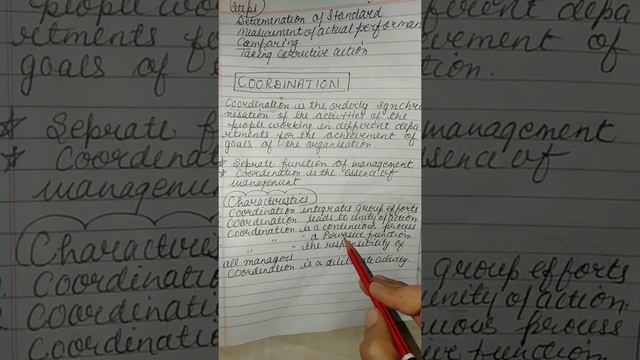 Steps)
Determenation of Standard
Measurement of actual performan
Comparing
Taking corrective action
COORDINATION
Coordination is the orderly synchro
nisation of the activities of the
people working in different depa
rtments for the achievement of
goals of the organisation
* Seprate function of management
* Coordination is the "essence of
management
Characteristics
Coordination integrates group efforts
Coordination leads to unity of action
Coordination is a continuous process
" " a Pervasive function
" " the responsibility of
all managers
Coordination is a deliberate activity